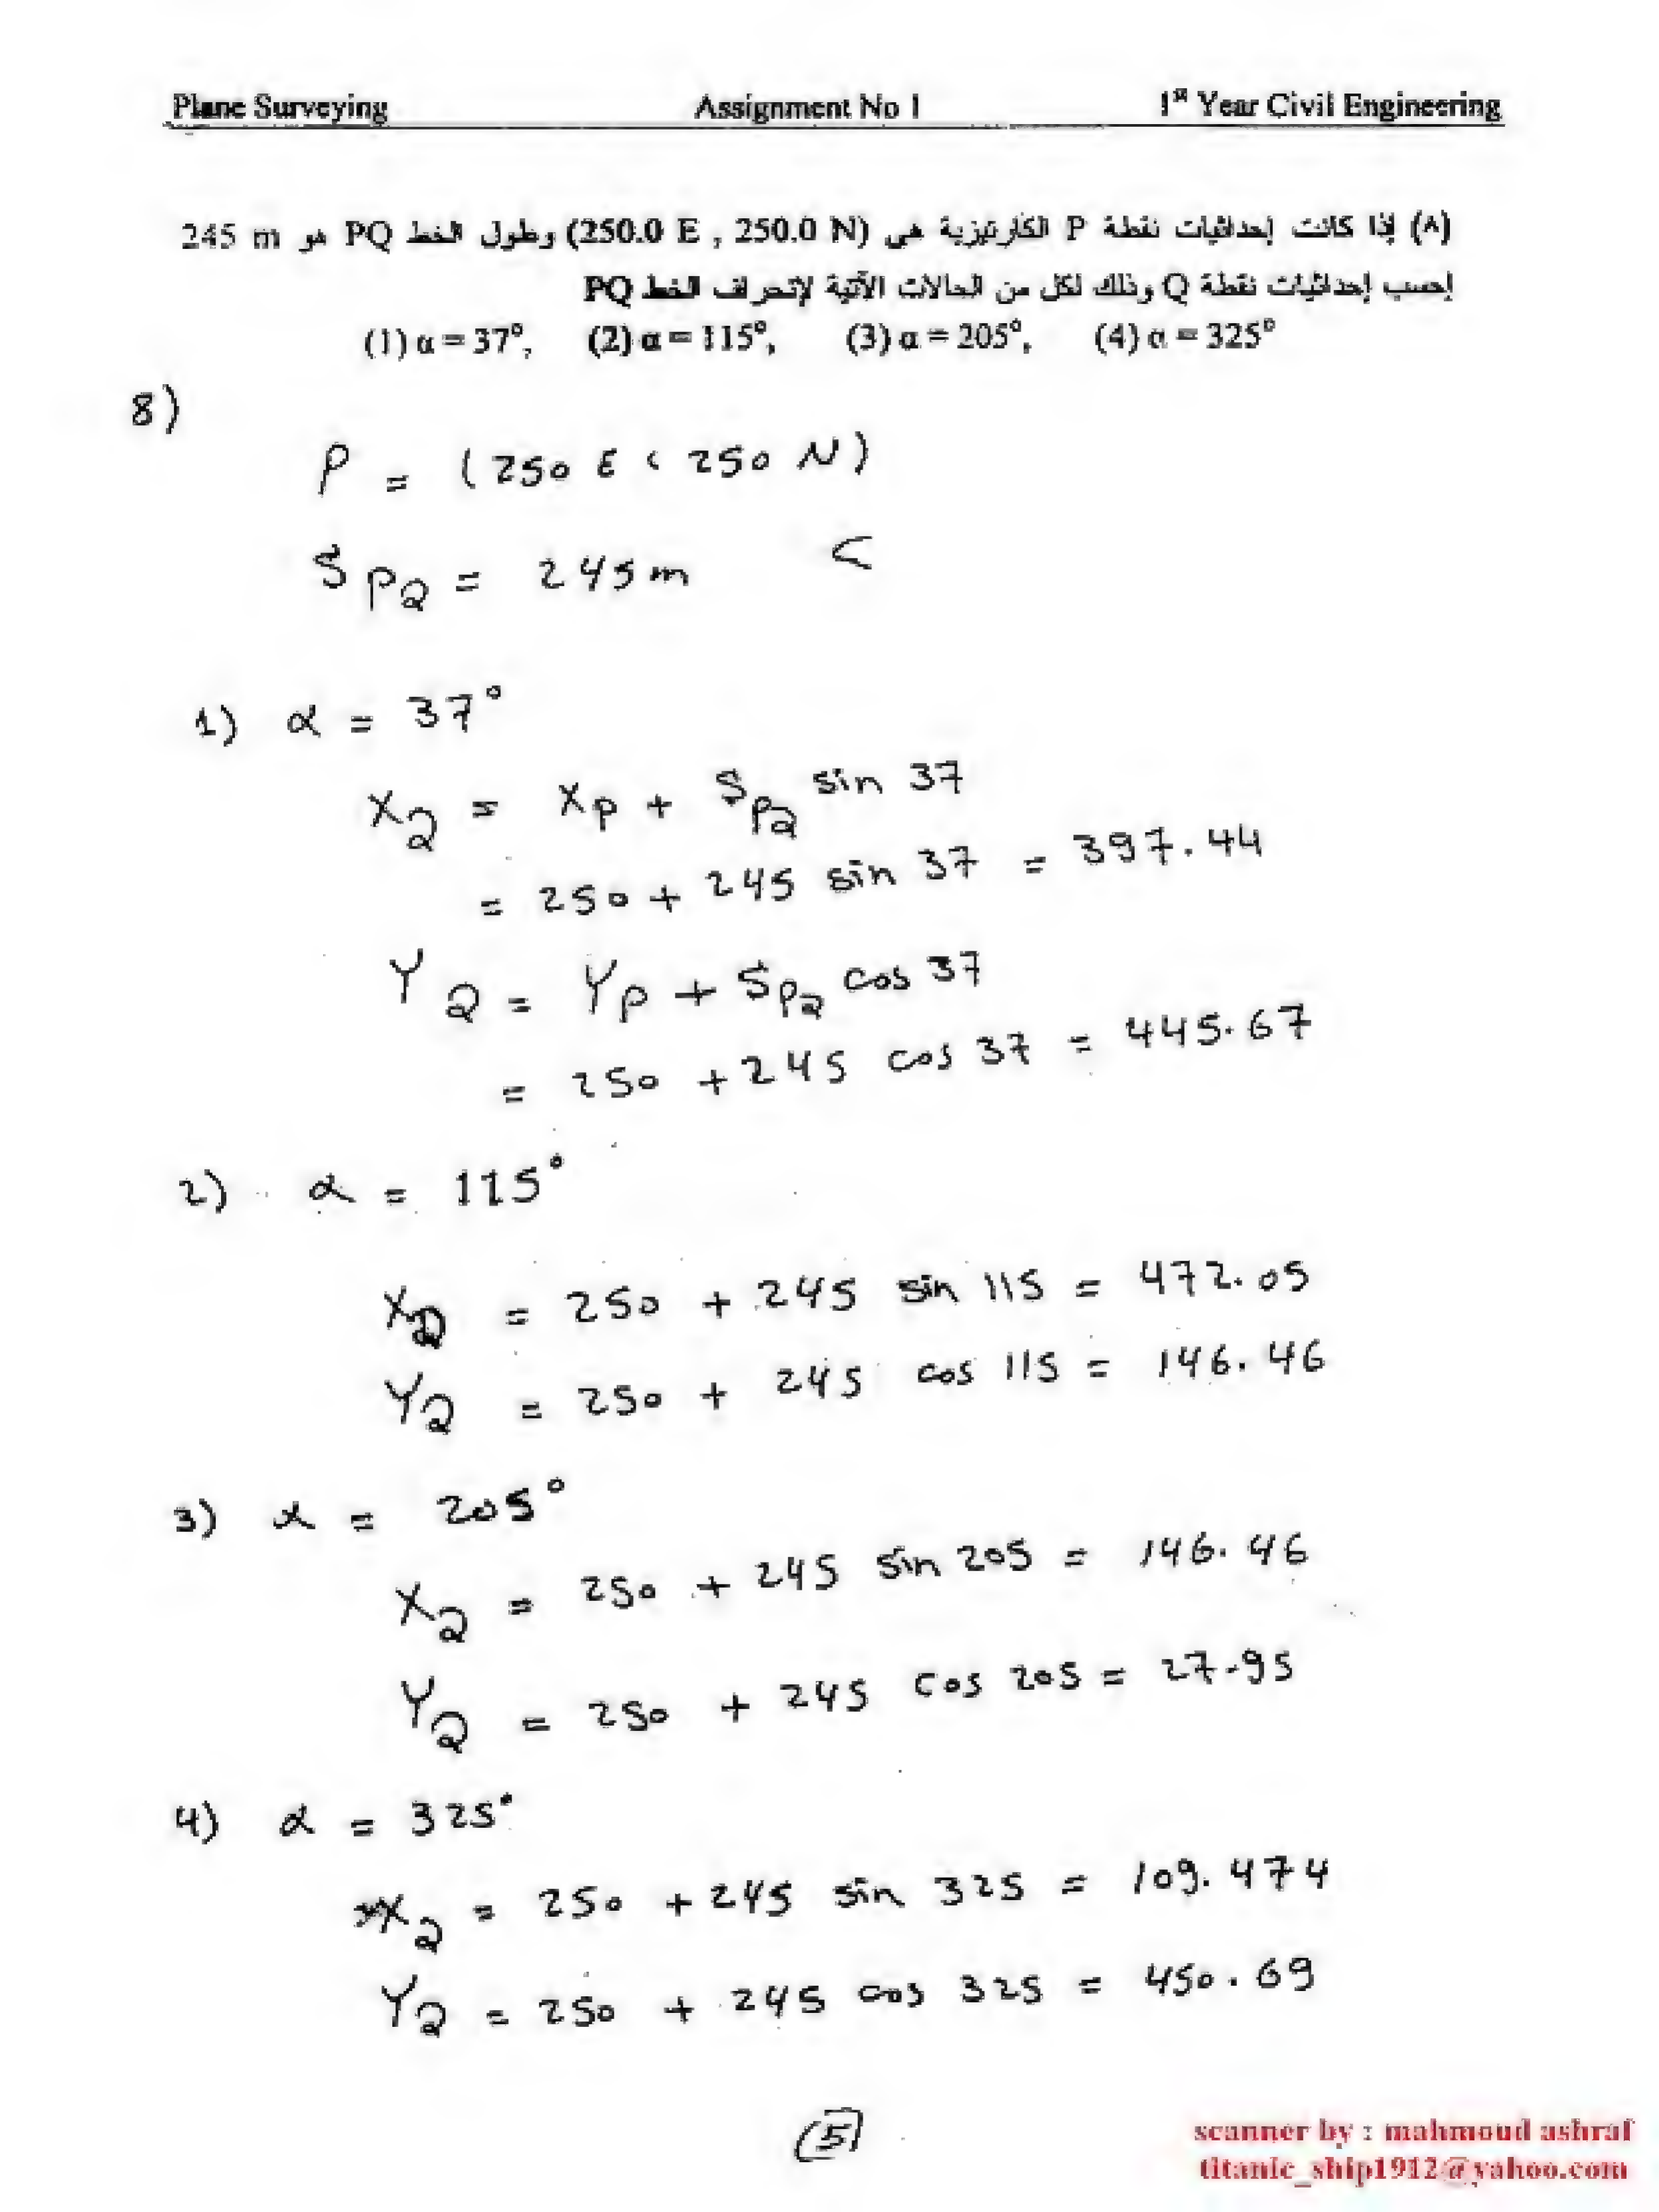 Plane Surveying Assignment No 1 1st Year Civil Engineering
(٨) إذا كانت إحداثيات نقطة P الكارتيزية هى (250.0 E , 250.0 N) وطول الخط PQ هو 245 m
إحسب إحداثيات نقطة Q وذلك لكل من الحالات الآتية لإنحراف الخط PQ
(1) α = 37°, (2) α = 115°, (3) α = 205°, (4) α = 325°
8)
P = (250 E ، 250 N)
S PQ = 245 m
1) α = 37°
XQ = XP + SPQ sin 37
= 250 + 245 sin 37 = 397.44
YQ = YP + SPQ cos 37
= 250 + 245 cos 37 = 445.67
2) α = 115°
XQ = 250 + 245 sin 115 = 472.05
YQ = 250 + 245 cos 115 = 146.46
3) α = 205°
XQ = 250 + 245 sin 205 = 146.46
YQ = 250 + 245 cos 205 = 27.95
4) α = 325°
XQ = 250 + 245 sin 325 = 109.474
YQ = 250 + 245 cos 325 = 450.69
(5)
scanner by : mahmoud ashraf
titanic_ship1912@yahoo.com